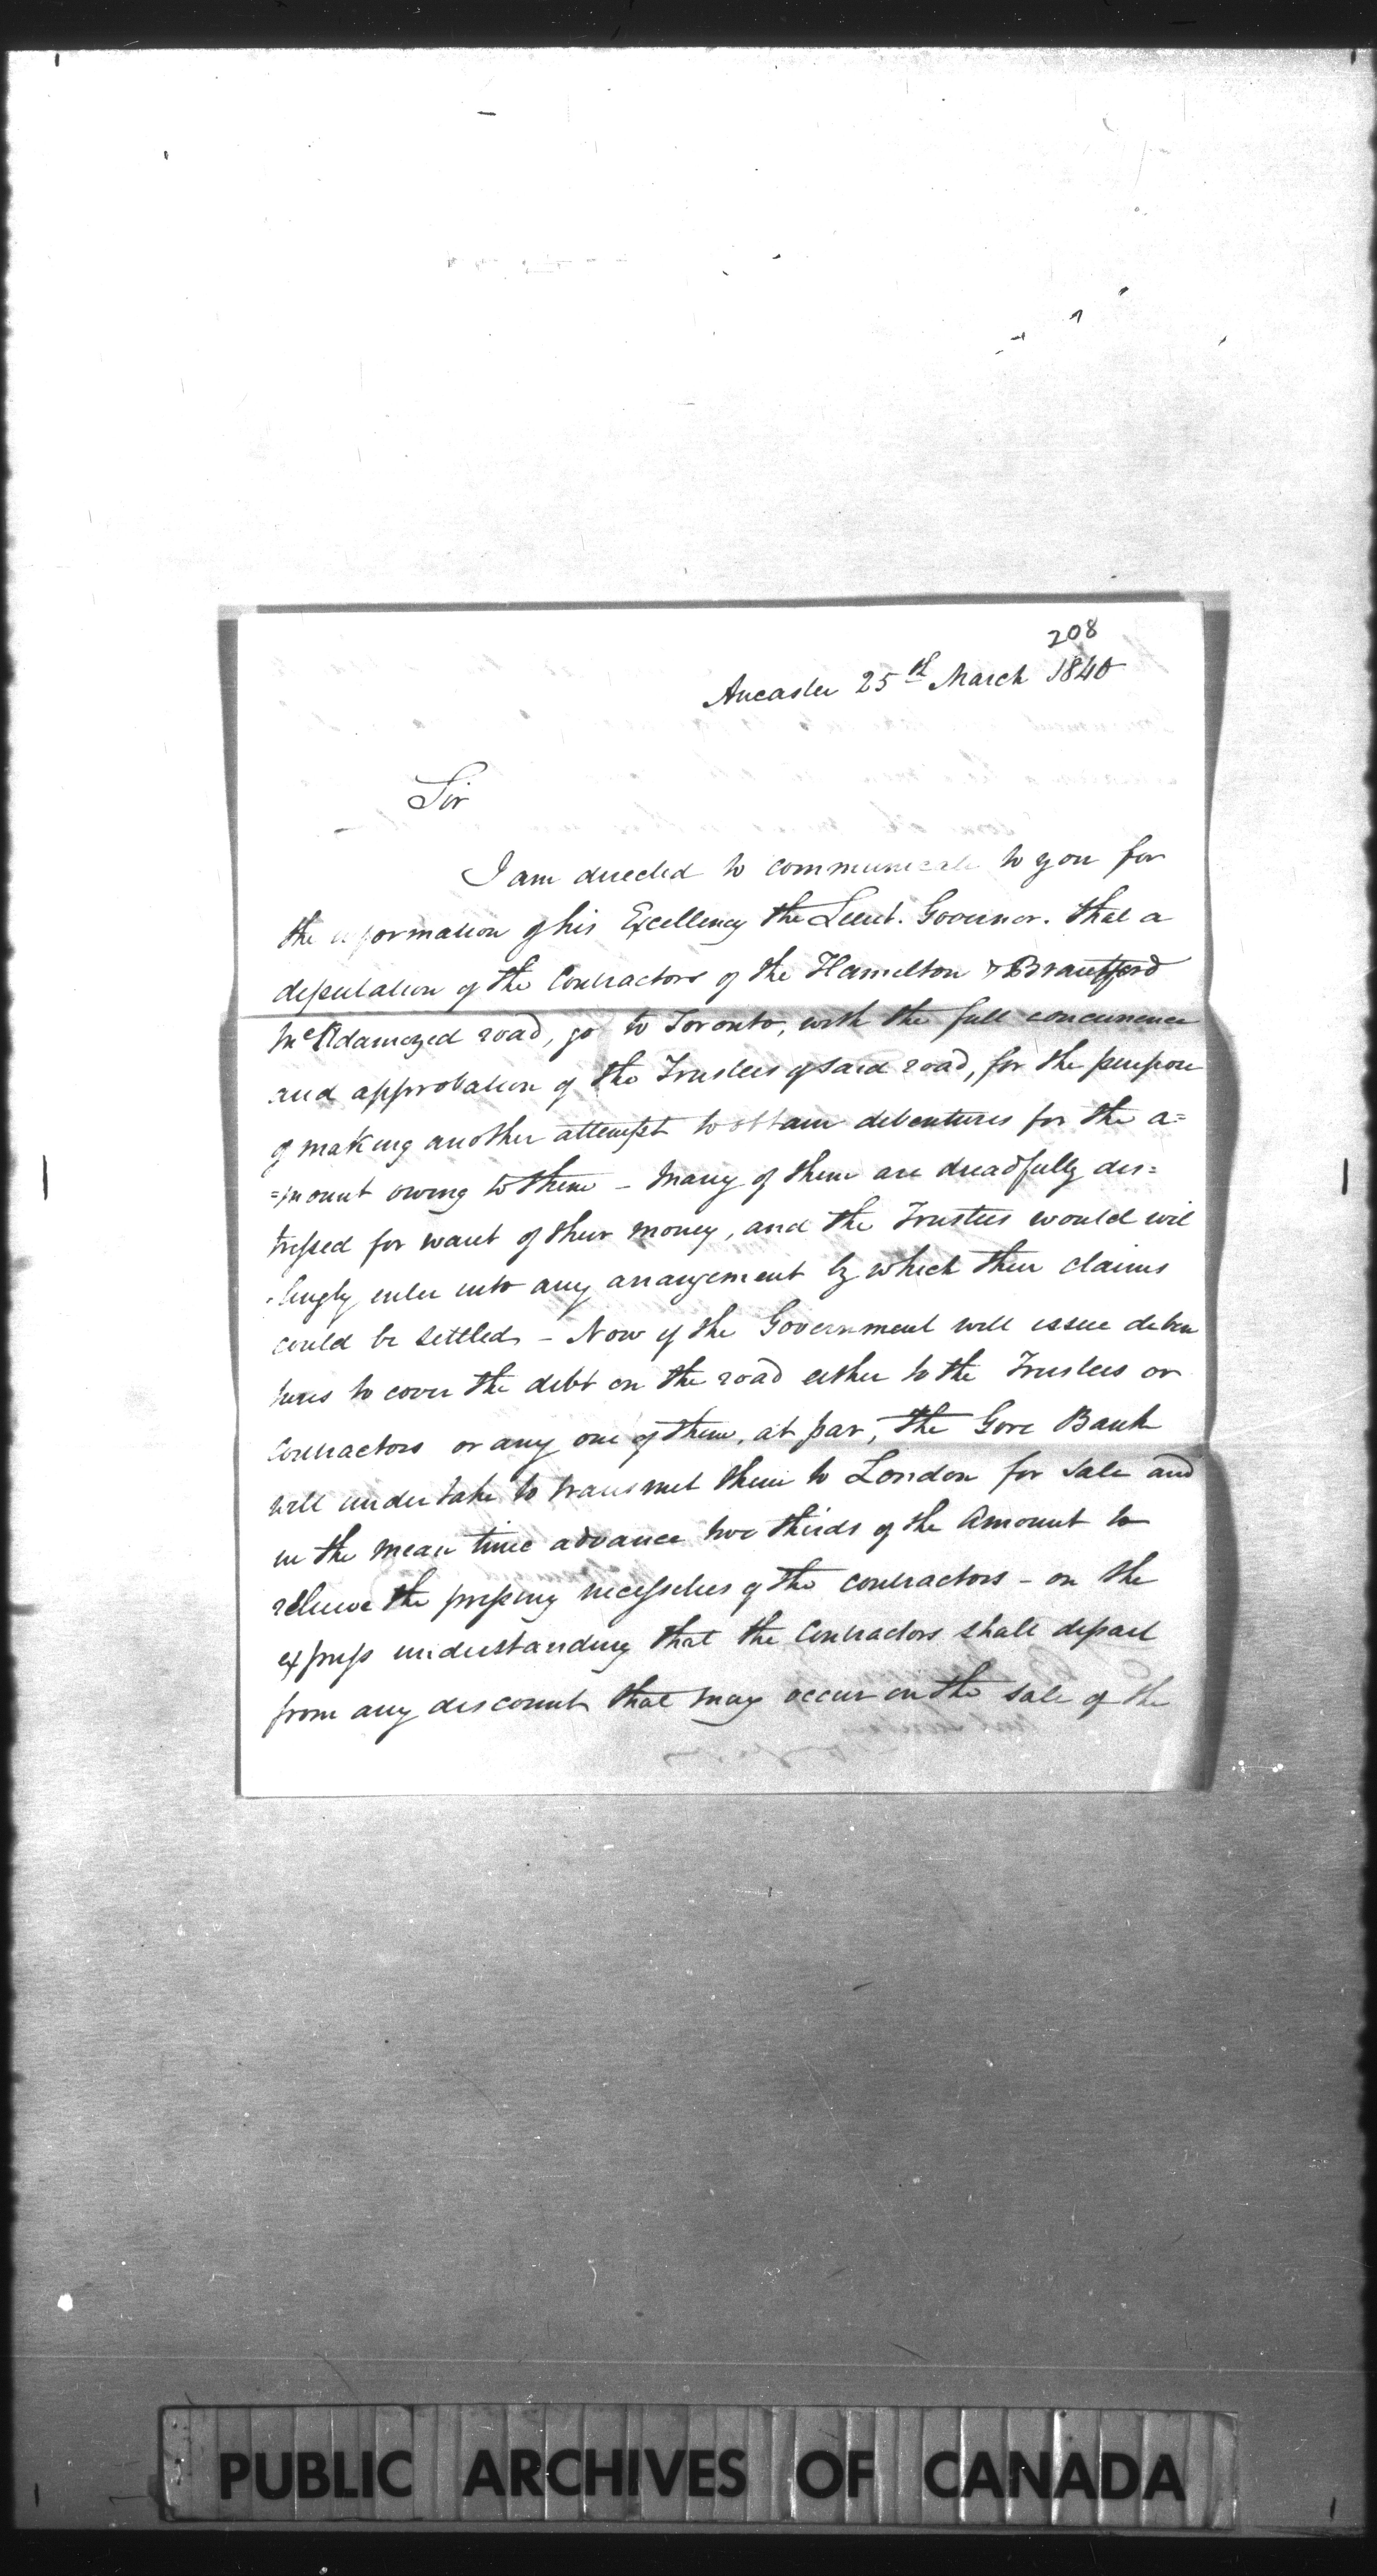 208
Ancaster 25th March 1840
Sir
I am directed to communicate to you for
the information of his Excellency the Lieut. Governor. that a
deputation of the Contractors of the Hamilton & Brantford
McAdamized road, go to Toronto, with the full concurrence
and approbation of the Trustees of said road, for the purpose
of making another attempt to obtain debentures for the a=
=mount owing to them - Many of them are dreadfully dis=
tressed for want of their money, and the Trustees would wil
lingly enter into any arrangement by which their claims
could be settled - Now if the Government will issue deben
tures to cover the debt on the road either to the Trustees or
Contractors or any one of them, at par, the Gore Bank
will undertake to transmit them to London for sale and
in the mean time advance two thirds of the Amount to
relieve the pressing necessities of the contractors - on the
express understanding that the Contractors shall
from any discount that may occur on the sale of the
PUBLIC ARCHIVES OF CANADA